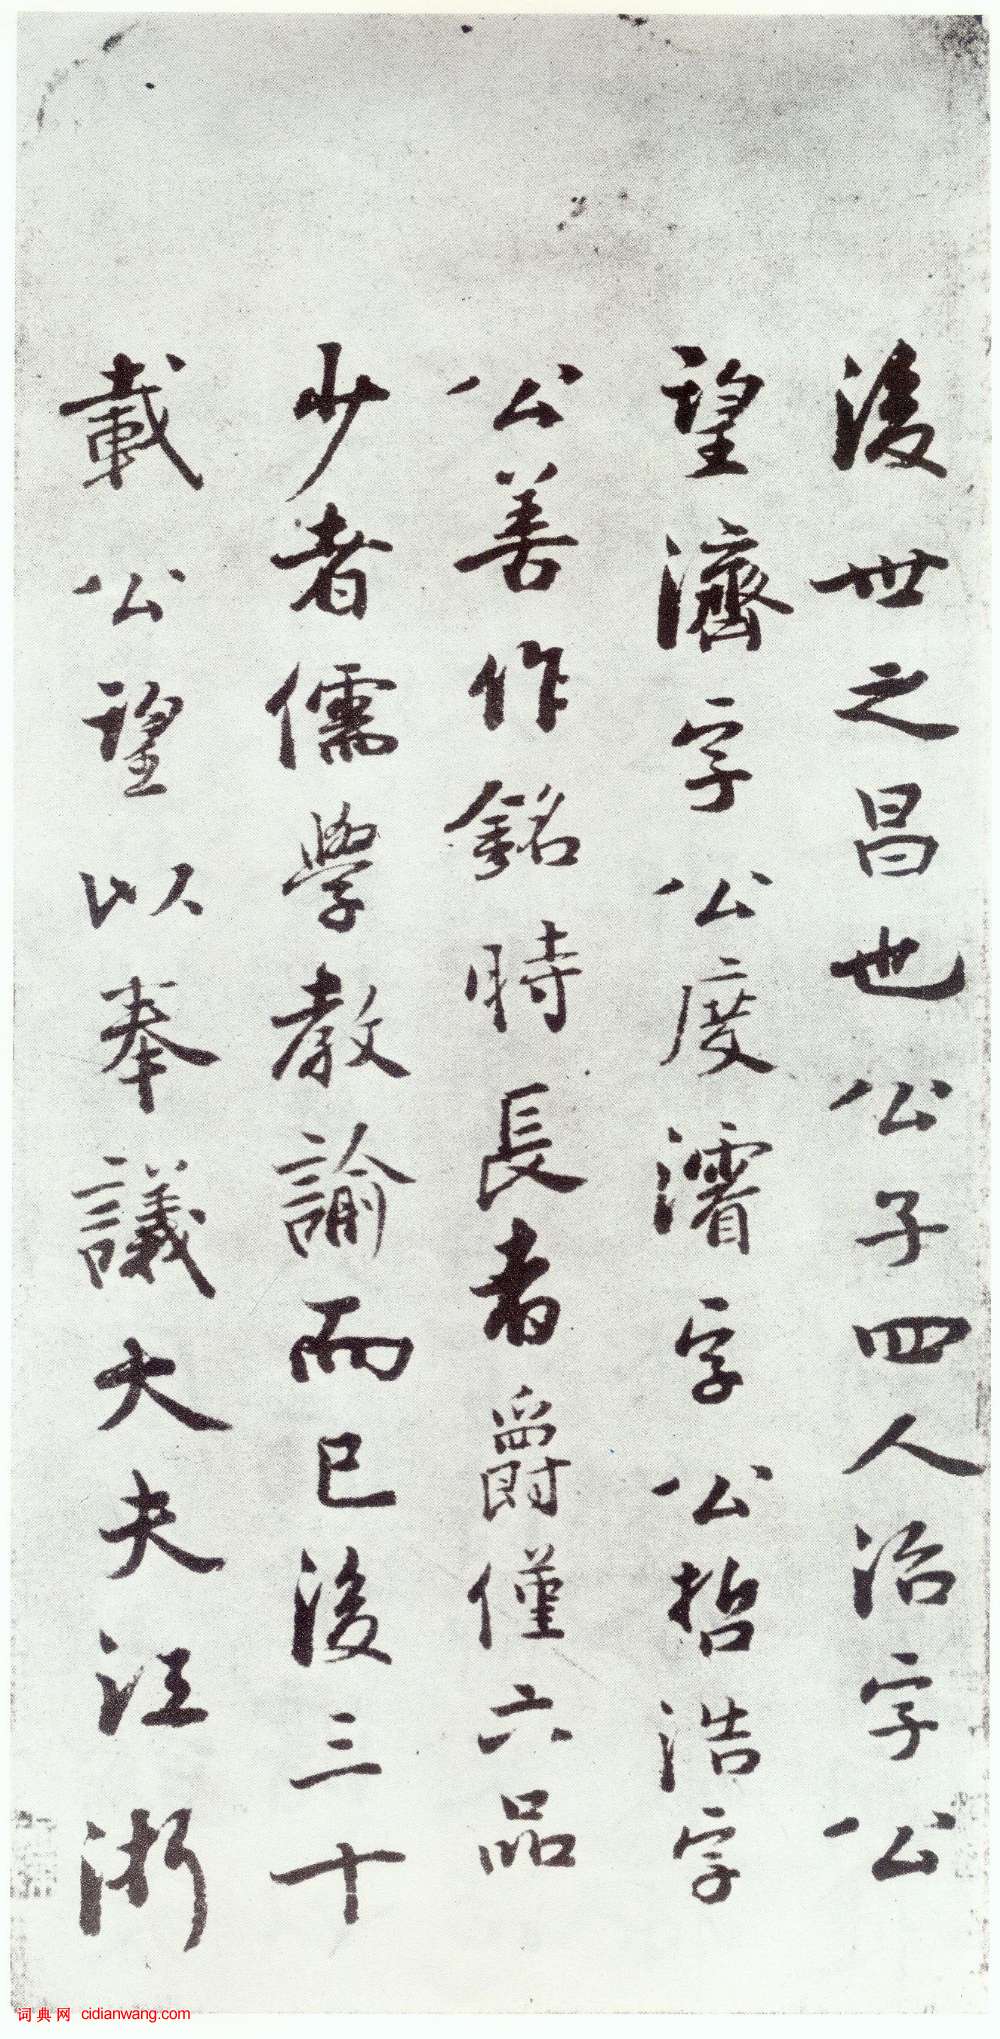 後世之昌也公子四人治字公
望濟字公度濬字公哲浩字
公善作銘時長者爵僅六品
少者儒學教諭而已後三十
載公望以奉議大夫江浙
词典网 cidianwang.com